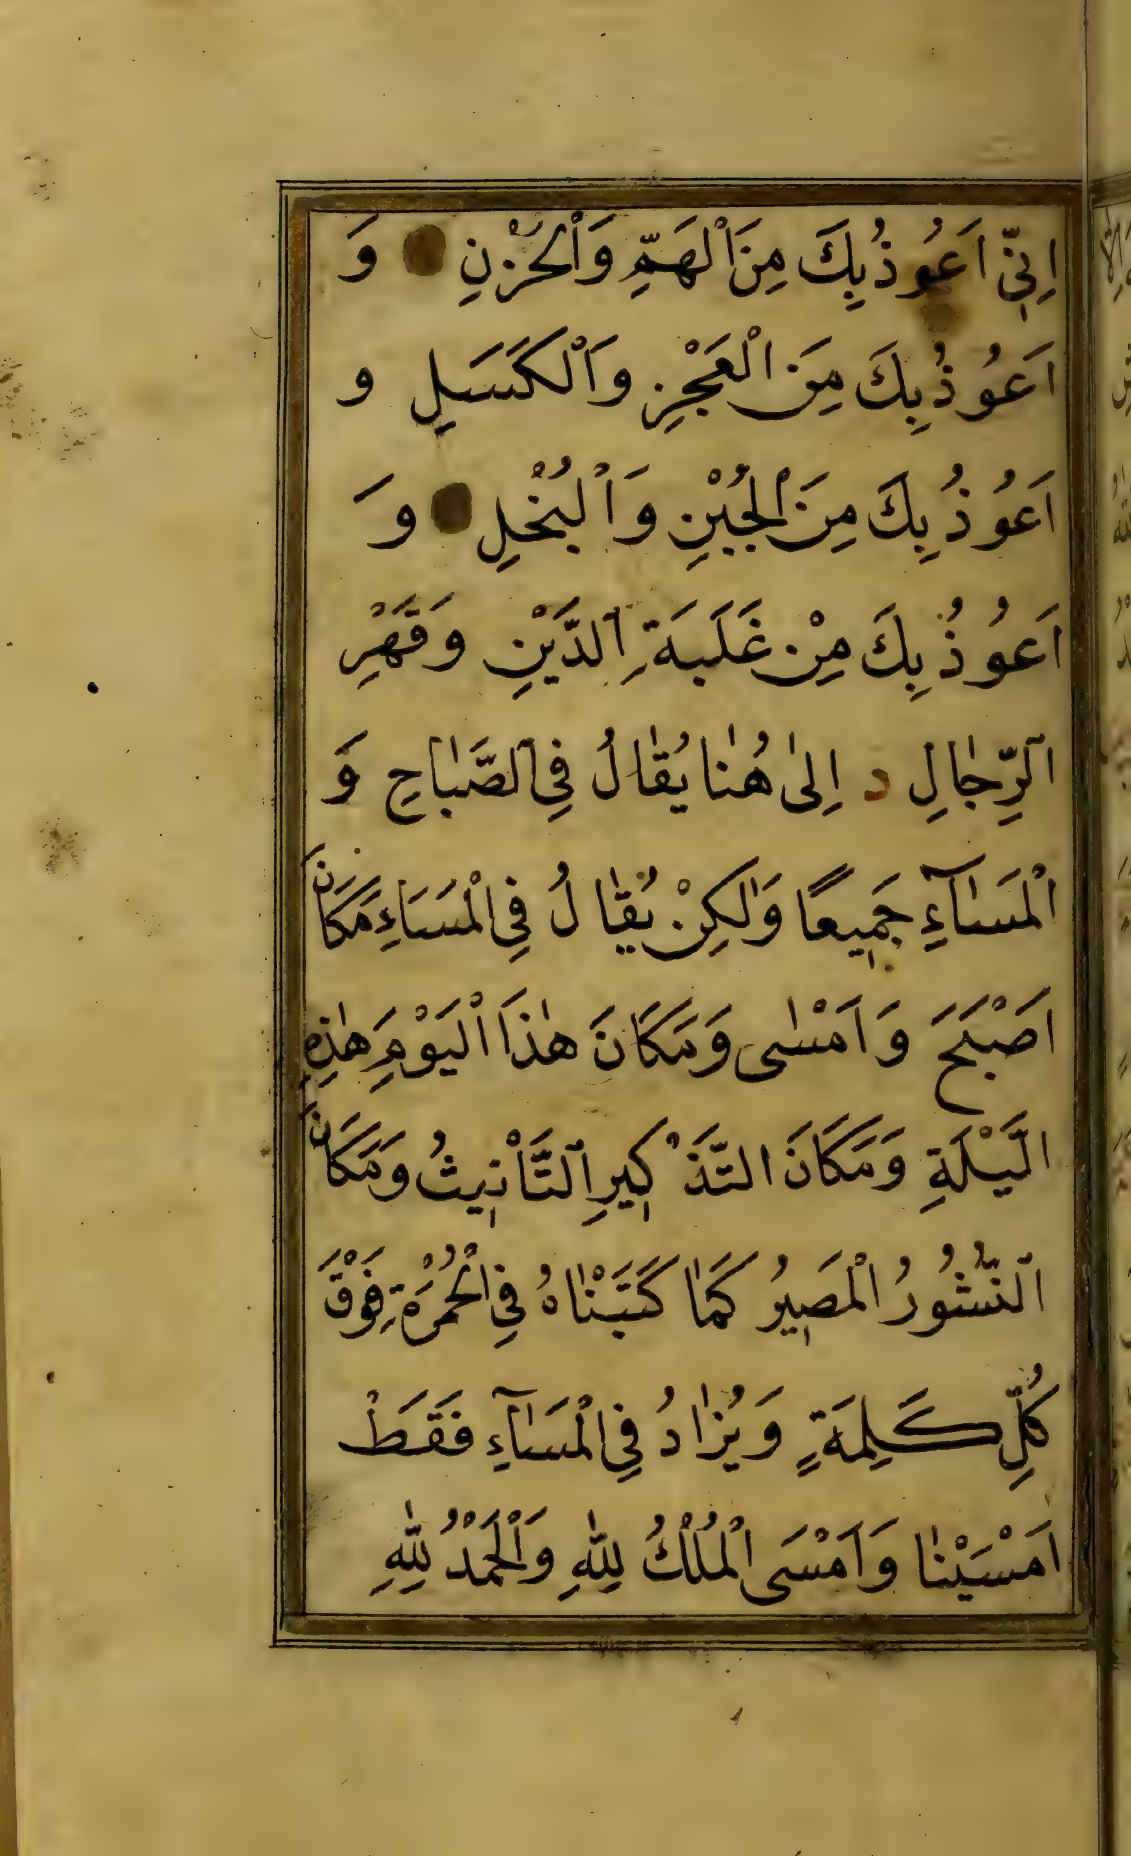 اِنِّي اَعُوذُ بِكَ مِنَ الْهَمِّ وَالْحَزَنِ وَ
اَعُوذُ بِكَ مِنَ الْعَجْزِ وَالْكَسَلِ و
اَعُوذُ بِكَ مِنَ الْجُبْنِ وَالْبُخْلِ وَ
اَعُوذُ بِكَ مِنْ غَلَبَةِ الدَّيْنِ وَقَهْرِ
الرِّجَالِ د اِلىٰ هُنٰا يُقٰالُ فِي الصَّبٰاحِ وَ
الْمَسٰآءِ جَمِيعًا وَلٰكِنْ يُقٰالُ فِي الْمَسَاءِ مَكَانَ
اَصْبَحَ وَاَمْسٰى وَمَكَانَ هٰذَا الْيَوْمِ هٰذِهِ
الَّيْلَةِ وَمَكَانَ التَّذْكِيرِ التَّاْنِيثُ وَمَكَانَ
النُّشُورُ الْمَصِيرُ كَمٰا كَتَبْنٰاهُ فِي الْحُمْرَةِ فَوْقَ
كُلِّ كَلِمَةٍ وَيُزٰادُ فِي الْمَسٰآءِ فَقَطْ
اَمْسَيْنٰا وَاَمْسَى الْمُلْكُ لِلّٰهِ وَالْحَمْدُ لِلّٰهِ